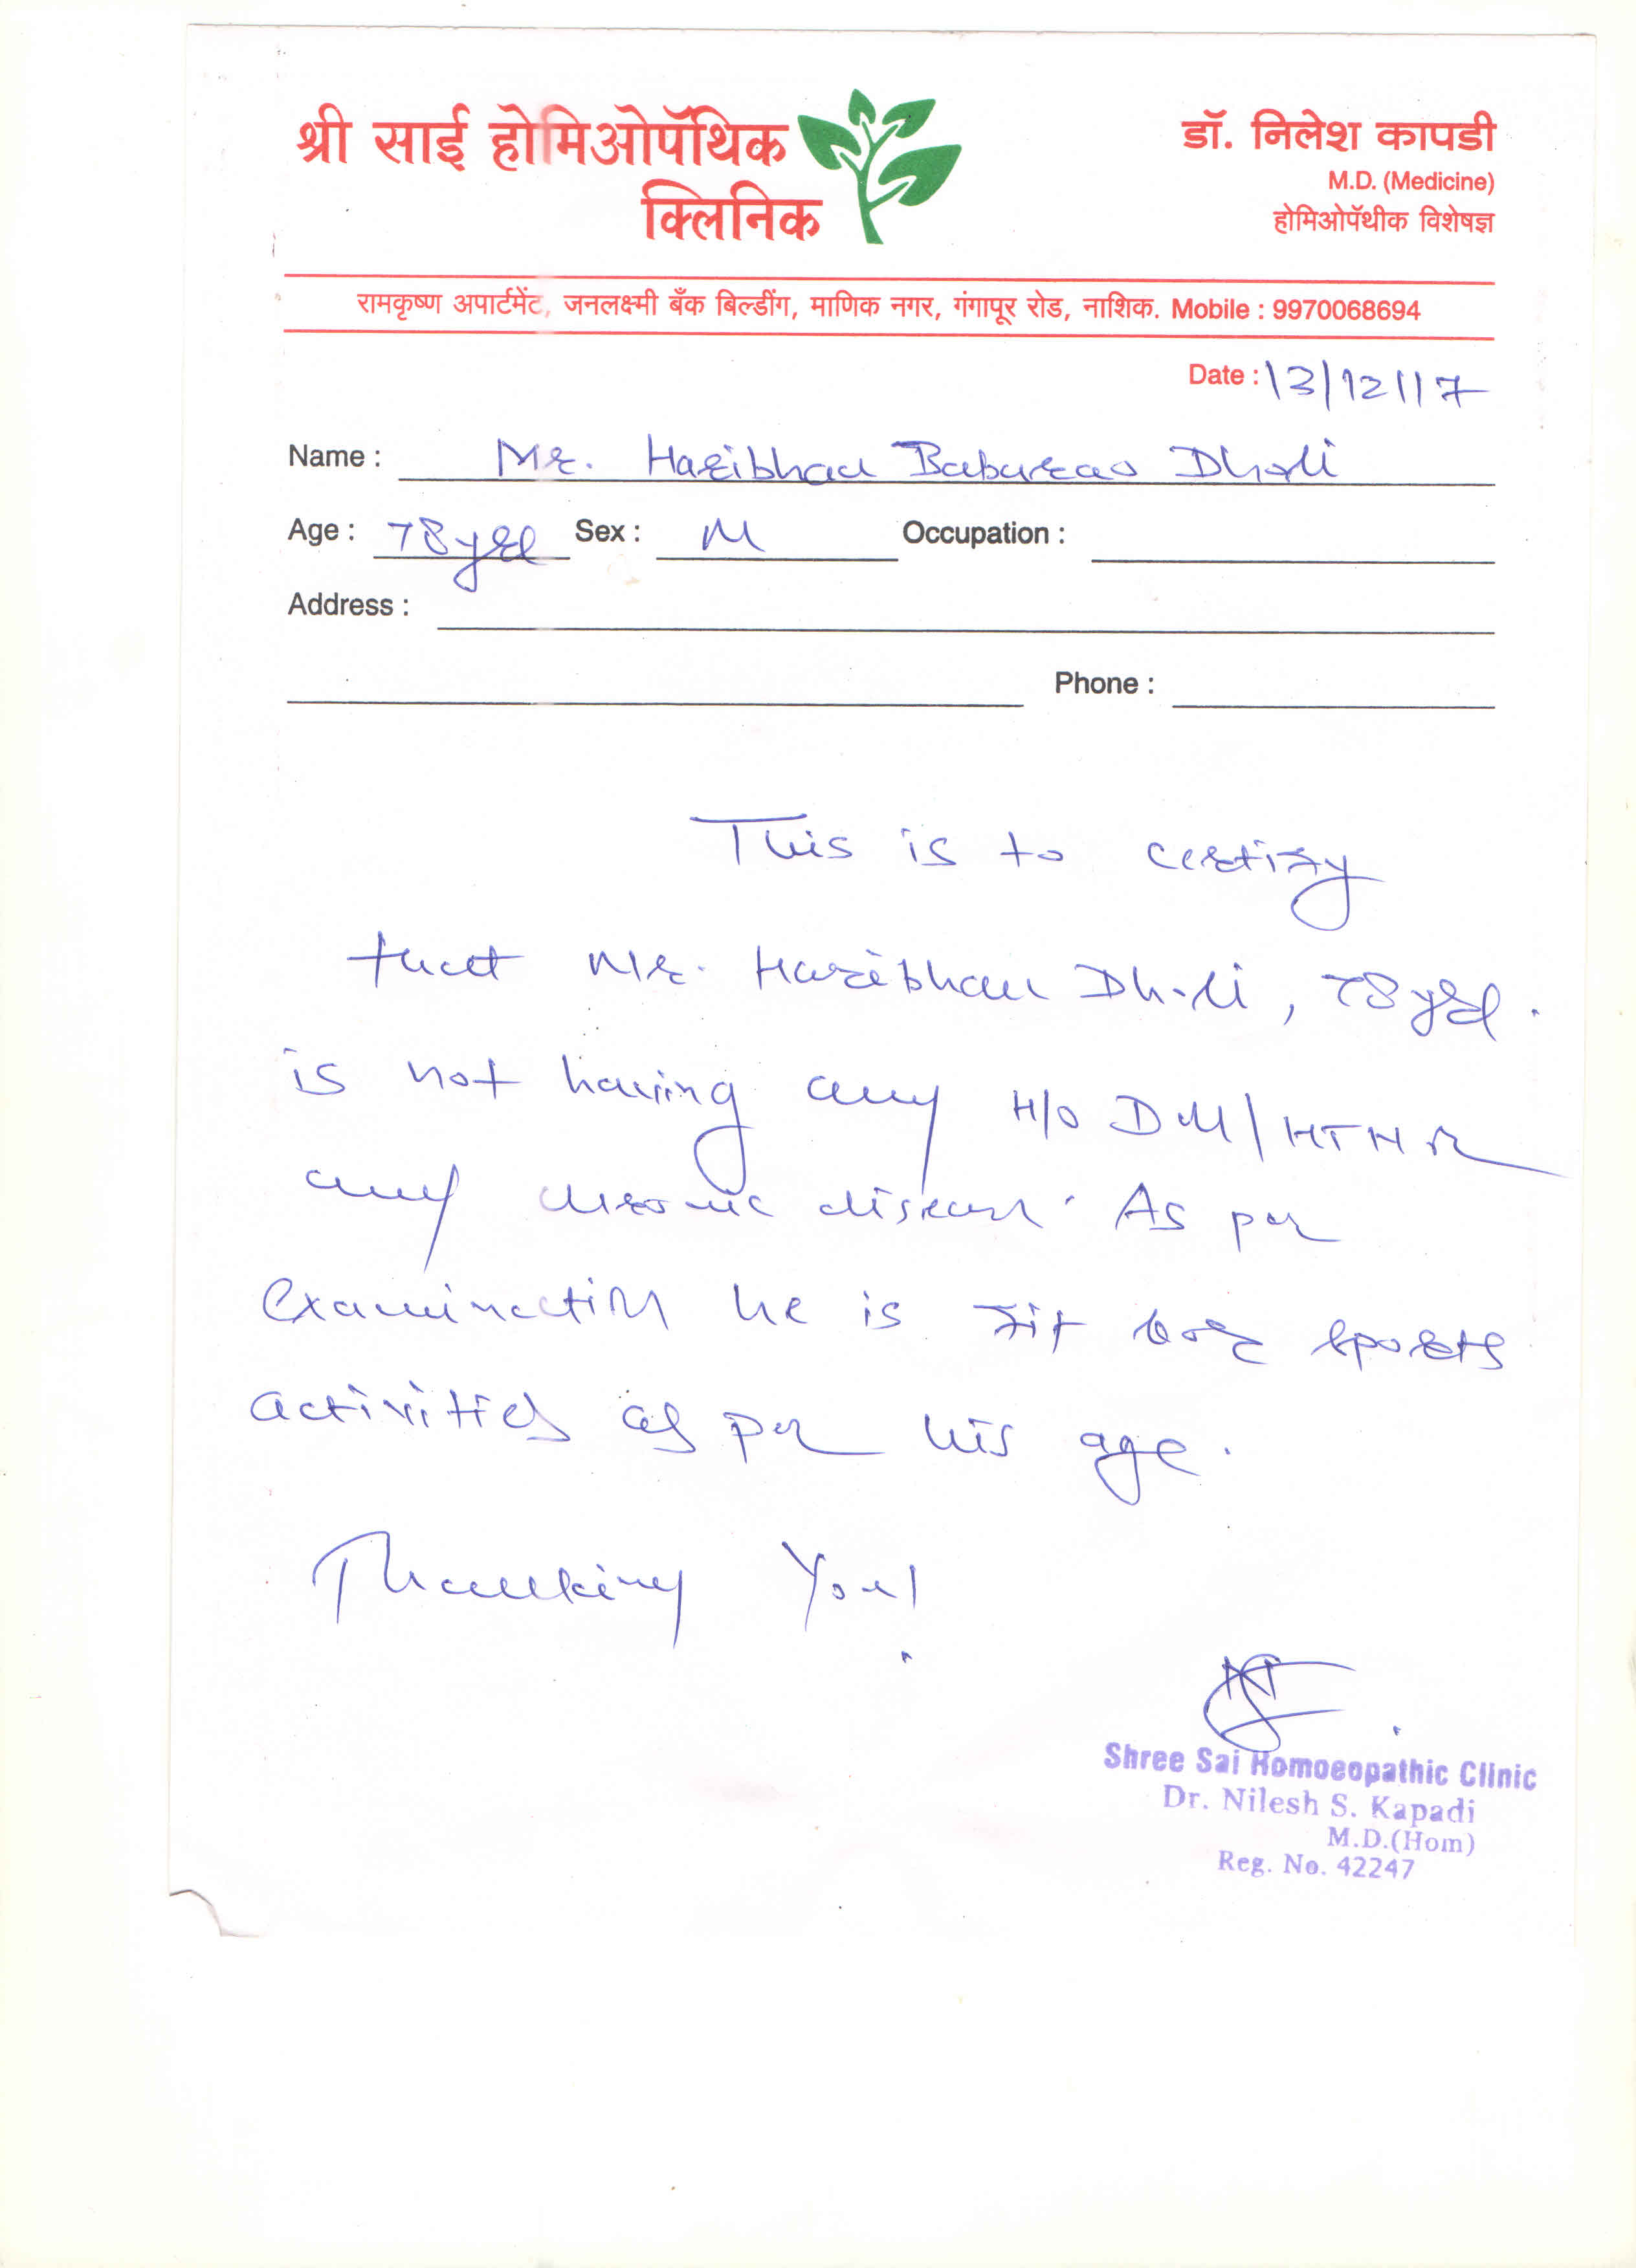 श्री साई होमिओपॅथिक
क्लिनिक
डॉ. निलेश कापडी
M.D. (Medicine)
होमिओपॅथीक विशेषज्ञ
रामकृष्ण अपार्टमेंट, जनलक्ष्मी बँक बिल्डींग, माणिक नगर, गंगापूर रोड, नाशिक. Mobile : 9970068694
Date : 13/12/17
Name : Mr. Haribhau Baburao Dholi
Age : 78 yrs Sex : M Occupation :
Address :
Phone :
This is to certify
that Mr. Haribhau Dholi, 78 yrs.
is not having any H/O DM/HTN or
any chronic disease. As per
examination he is fit for sports
activities as per his age.
Thanking You!
Shree Sai Homoeopathic Clinic
Dr. Nilesh S. Kapadi
M.D.(Hom)
Reg. No. 42247